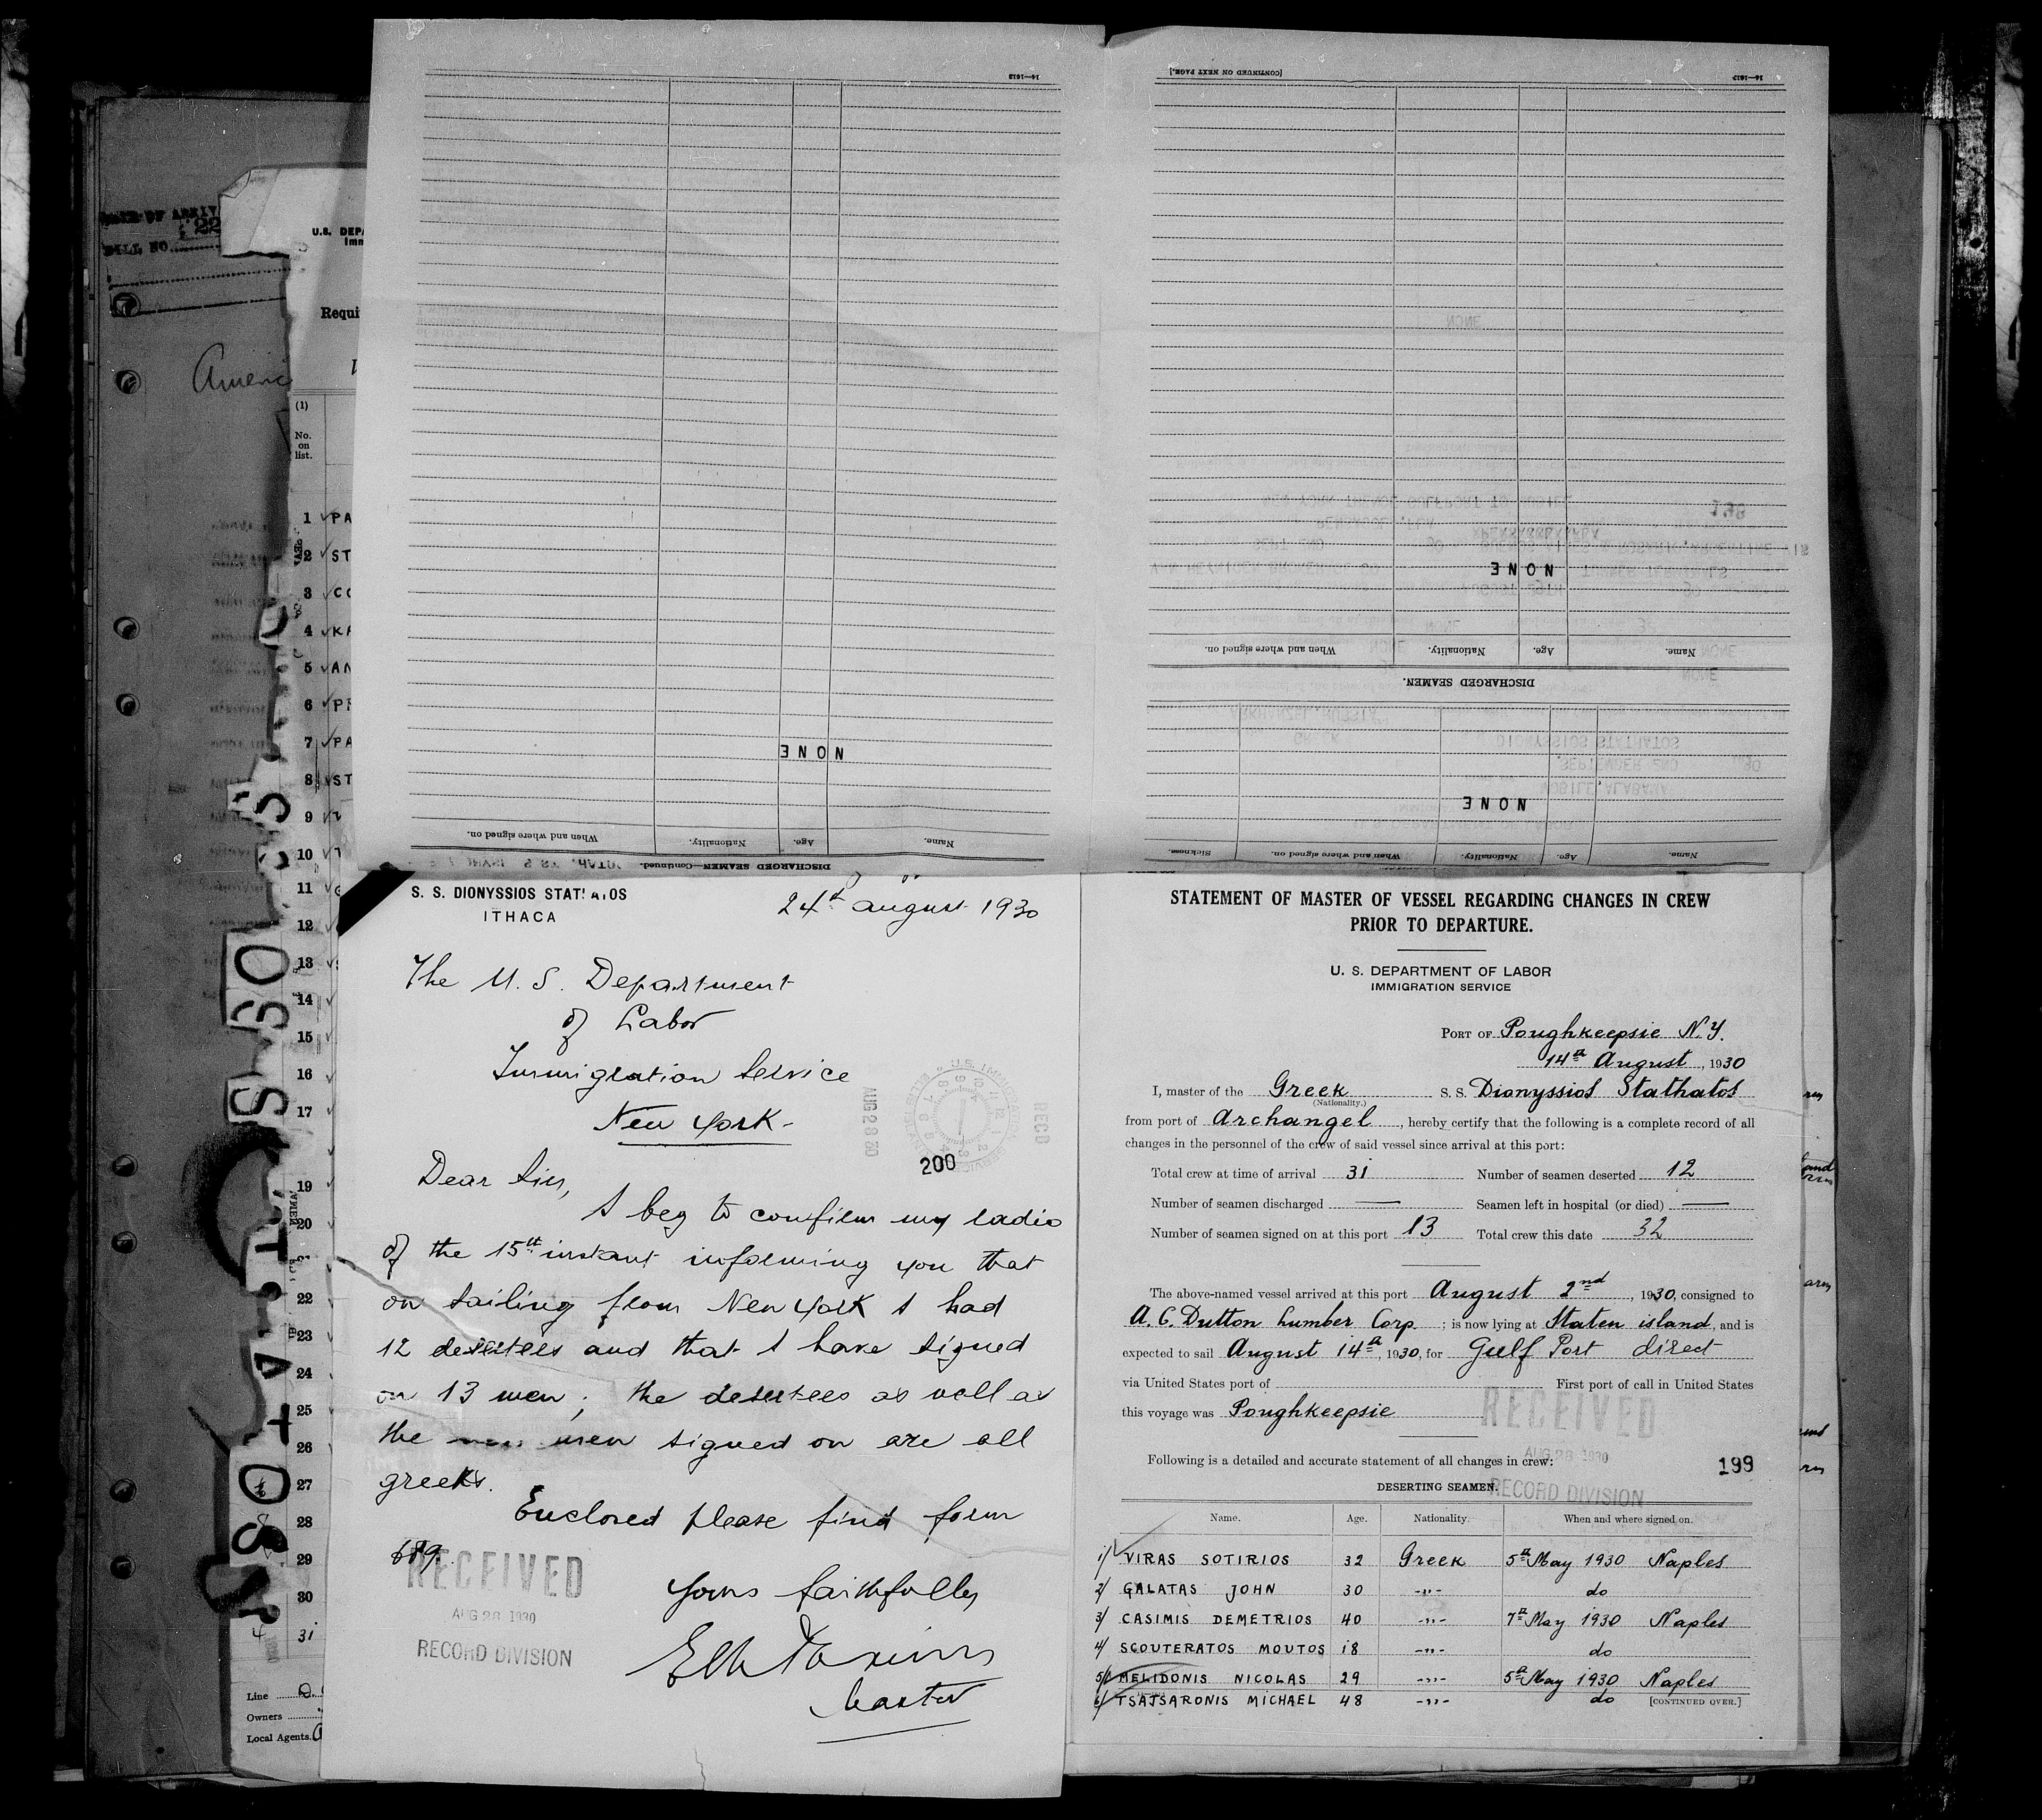 [CONTINUED ON NEXT PAGE.]
NONE
NONE
When and where signed on.
Nationality.
Age.
Name.
DISCHARGED SEAMEN—Continued.
NONE
When and where signed on.
Nationality.
Age.
Name.
DISCHARGED SEAMEN.
NONE
Sickness.
When and where signed on.
Nationality.
Age.
Name.
DATE OF ARRIV
22
BILL NO.
U.S. DEPA
Imm
Requi
Americ
(1)
No.
on
list.
1 PA
2 ST
3 CO
4 KA
5 AN
6 PR
7 PA
8 ST
9
10
11
12
13
14
15
16
17
19
20
22
23
24
25
26
27
28
29
30
31
Line
Owners
Local Agents.
S. S. DIONYSSIOS STATHATOS
ITHACA
24th august 1930
The U. S. Department
of Labor
Immigration Service
New York -
AUG 28 30
RECD
200
Dear Sirs,
I beg to confirm my radio
of the 15th instant informing you that
on sailing from New York I had
12 desertees and that I have signed
on 13 men; the desertees as well as
the men signed on are all
greeks.
Enclosed please find form
689.
RECEIVED
AUG 28 1930
RECORD DIVISION
Yours faithfully
Master
STATEMENT OF MASTER OF VESSEL REGARDING CHANGES IN CREW
PRIOR TO DEPARTURE.
U. S. DEPARTMENT OF LABOR
IMMIGRATION SERVICE
PORT OF Poughkeepsie N.Y.
14th August, 1930
I, master of the Greek S. S. Dionyssios Stathatos
(Nationality.)
from port of Archangel, hereby certify that the following is a complete record of all
changes in the personnel of the crew of said vessel since arrival at this port:
Total crew at time of arrival 31 Number of seamen deserted 12
Number of seamen discharged — Seamen left in hospital (or died) —
Number of seamen signed on at this port 13 Total crew this date 32
The above-named vessel arrived at this port August 2nd, 1930, consigned to
A. C. Dutton Lumber Corp. ; is now lying at Staten island, and is
expected to sail August 14th, 1930, for Gulf Port direct
via United States port of First port of call in United States
this voyage was Poughkeepsie
RECEIVED
AUG 28 1930
RECORD DIVISION
Following is a detailed and accurate statement of all changes in crew:
199
DESERTING SEAMEN.
Name. Age. Nationality. When and where signed on.
1/ VIRAS SOTIRIOS 32 Greek 5th May 1930 Naples
2/ GALATAS JOHN 30 -"- do
3/ CASIMIS DEMETRIOS 40 -"- 7th May 1930 Naples
4/ SCOUTERATOS MOUTOS 18 -"- do
5/ MELIDONIS NICOLAS 29 -"- 5th May 1930 Naples
6/ TSATSARONIS MICHAEL 48 -"- do [CONTINUED OVER.]